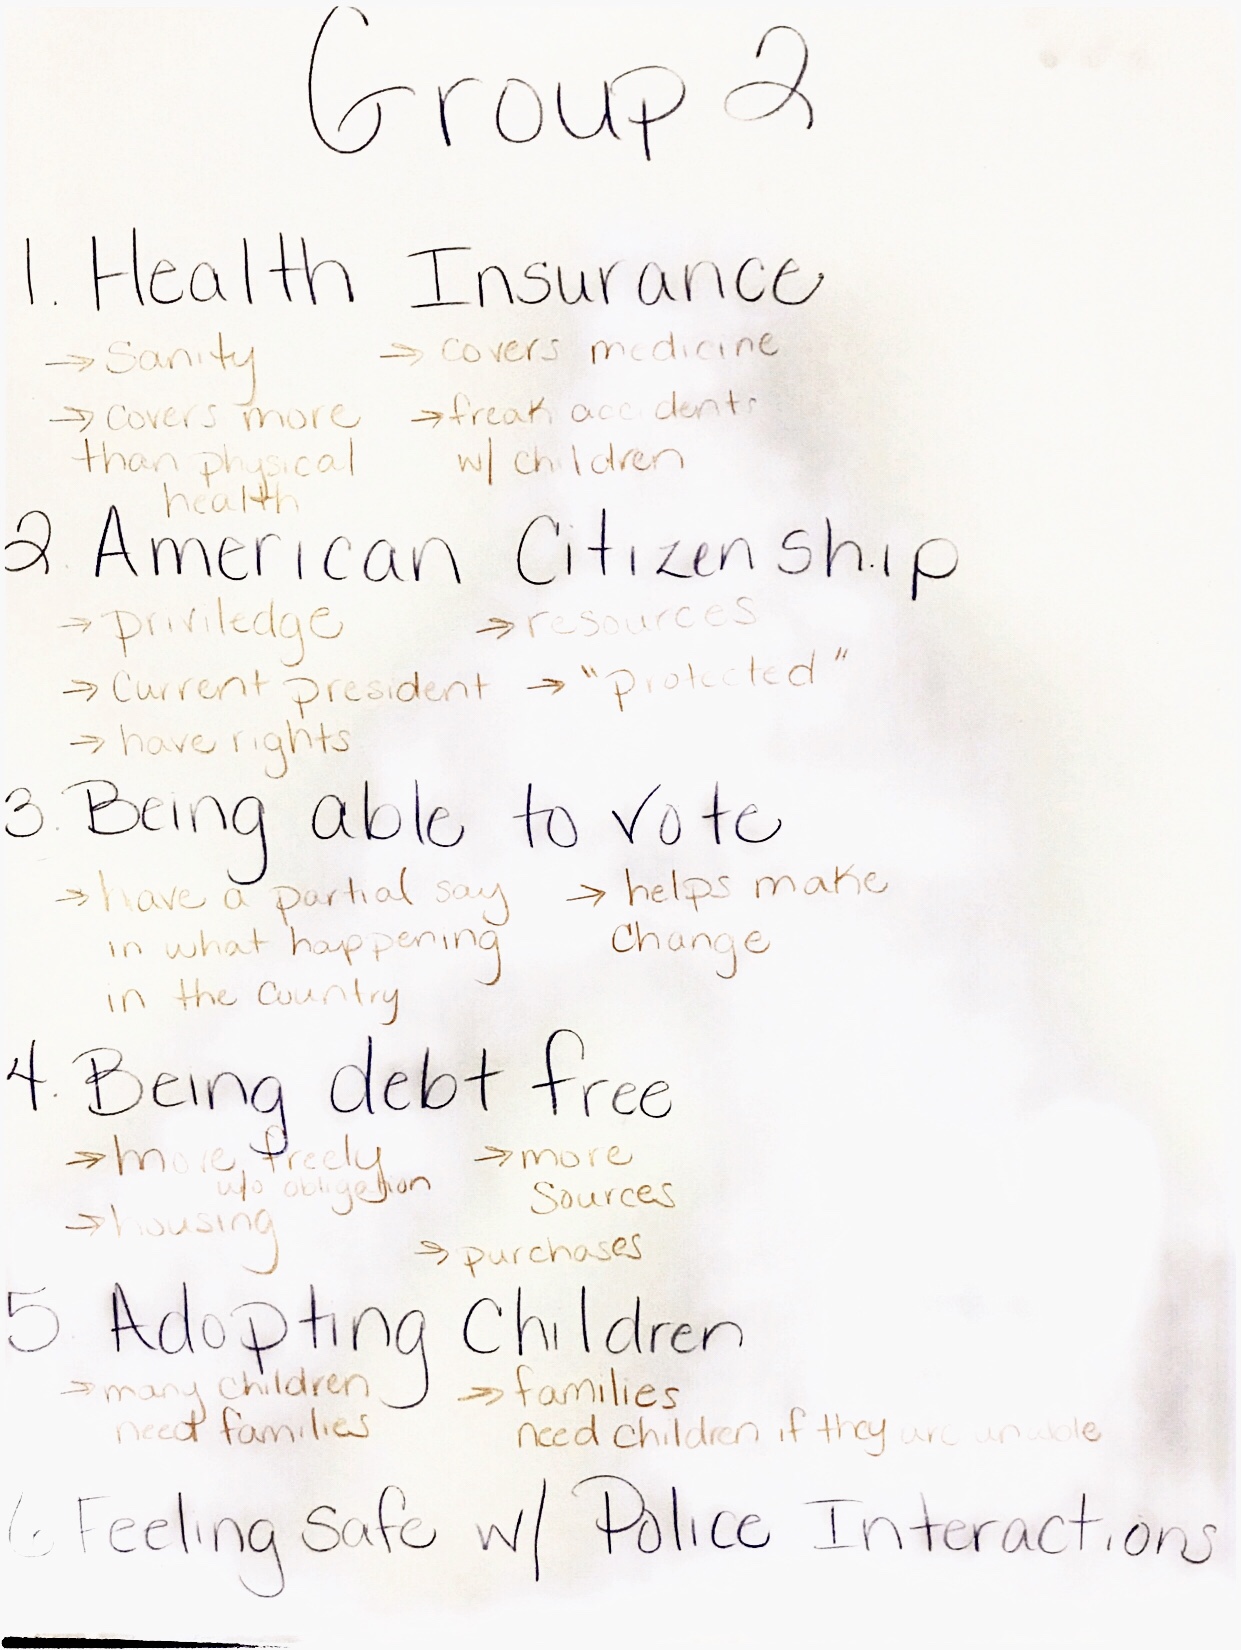 Group 2
1. Health Insurance
→ Sanity
→ covers more
than physical
health
→ covers medicine
→ freak accidents
w/ children
2. American Citizenship
→ priviledge
→ Current president
→ have rights
→ resources
→ "protected"
3. Being able to vote
→ have a partial say
in what happening
in the country
→ helps make
change
4. Being debt free
→ more freely
w/o obligation
→ housing
→ more
sources
→ purchases
5. Adopting Children
→ many children
need families
→ families
need children if they are unable
6 Feeling safe w/ Police Interactions